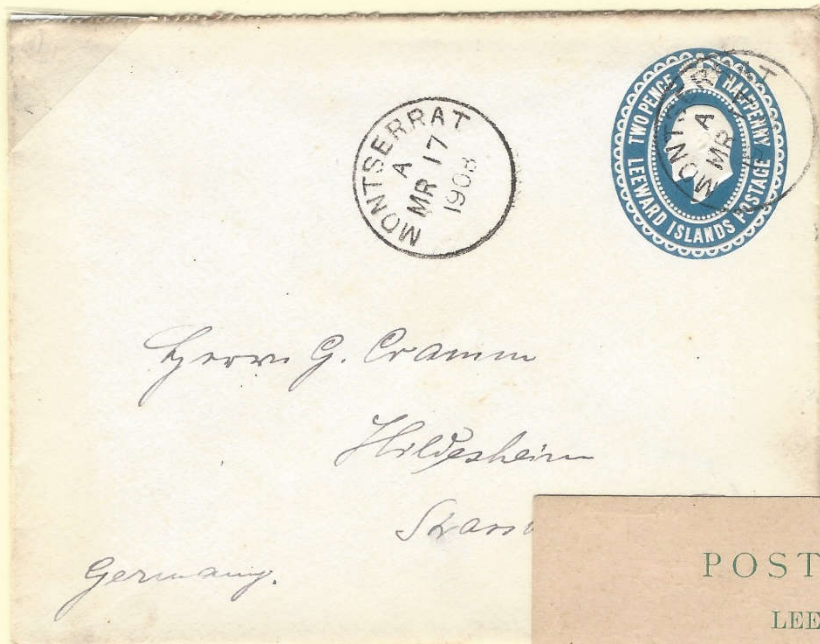 MONTSERRAT
A
MR 17
1908
TWO PENCE HALFPENNY
LEEWARD ISLANDS POSTAGE
MONTSERRAT
A
MR
Herrn G. Cramm
Hildesheim
Germany.
POST
LEE